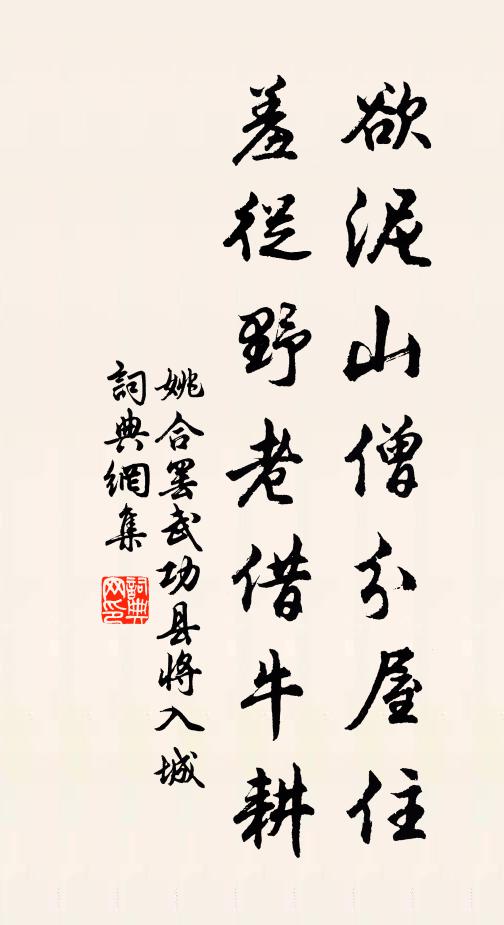 欲泥山僧分屋住
羞從野老借牛耕
姚合罷武功县將入城
詞典網集
詞典
网印